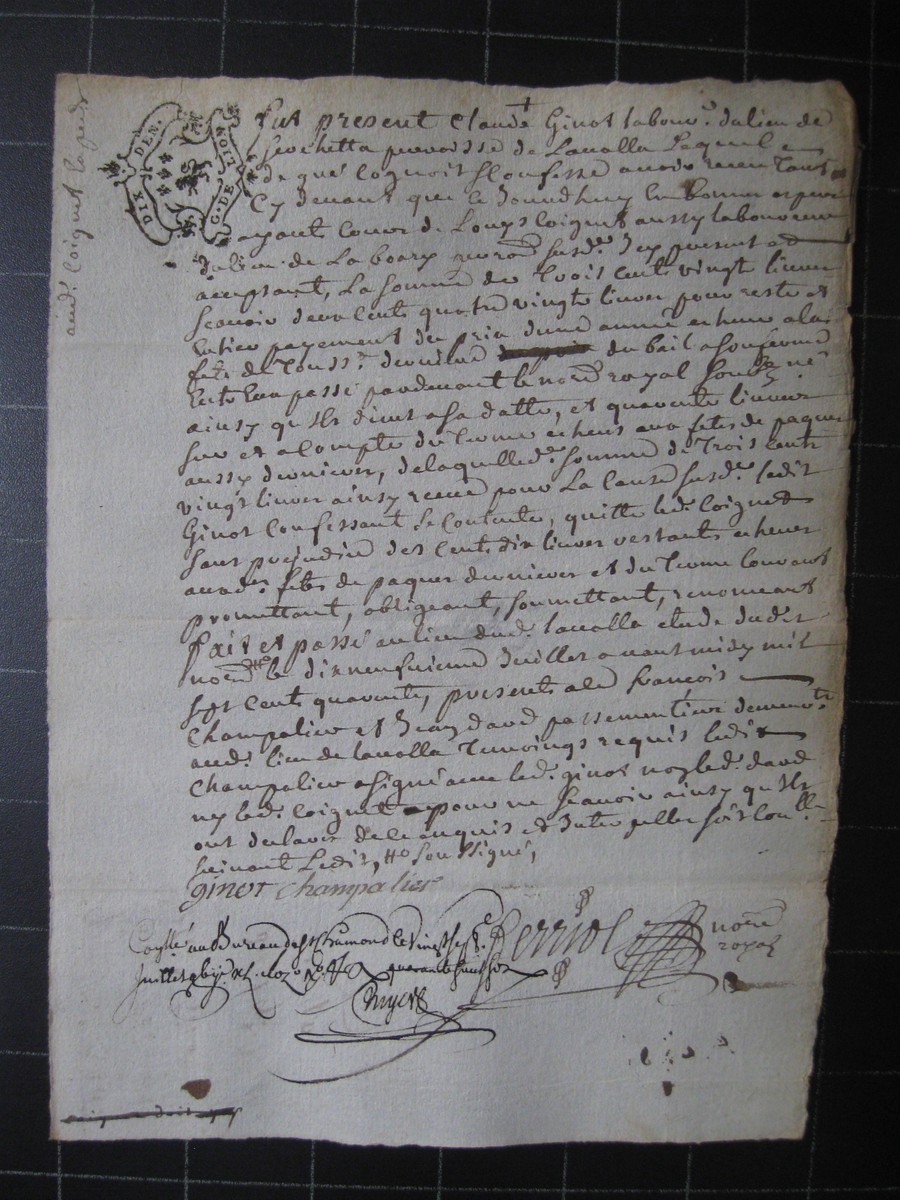 DIX DEN.
G. DE LION
audt. Coignet la pud
fut present Claude Ginot labour.r du lieu de
paroisse de Lavalla Lequel
de gré Cognoit & Confesse avoir receu tant
Cy devant que ce Jourdhuy en bonnes especes
ayant Cours de Louys Coignet aussy laboureur
du lieu de La par.se susd.e Icy present et
acceptant, La somme de Trois Cents vingts livres
scavoir deux Cents quatre vingts livres pour reste et
Entier payement du prix dune année echeue a la
fete de Touss.ts derniere du bail a
Entreux passé pardevant le no.re royal soubz.né
ainsy qu'ils dient a sa datte, et quarente livres
sur et a Compte du Terme echeus aux fetes de paques
aussy dernieres, delaquelle d.e somme de Trois Cents
vingts livres ainsy receue pour La Cause susd.e ledit
Ginot Confessant se Contente, quitte led. Coignet
sans prejudice des Cents dix livres restants echeues
auxd.es fetes de paques dernieres et du Terme Courant
promettant, obligeant, soumettant, renonceant
fait et passé au lieu dud. Lavalla etude dudit
no.re le dixneufvieme Juillet avant midy mil
sept Cents quarente, presents a ce François
Champalier et Jean davd passementiers demeur.ts
aud. lieu de Lavalla Temoings requis ledit
Champalier a signé avec led. Ginot non led. davd
ny led. Coignet pour ne scavoir ainsy qu'ils
ont declaré de ce enquis et Interpellés soit Con.lle
suivant Ledit, soussigné,
ginot Champalier
Con.llé au Bureau de St Chamond le vingt sept
Juillet quarante huit sols
Perriol no.re
royal